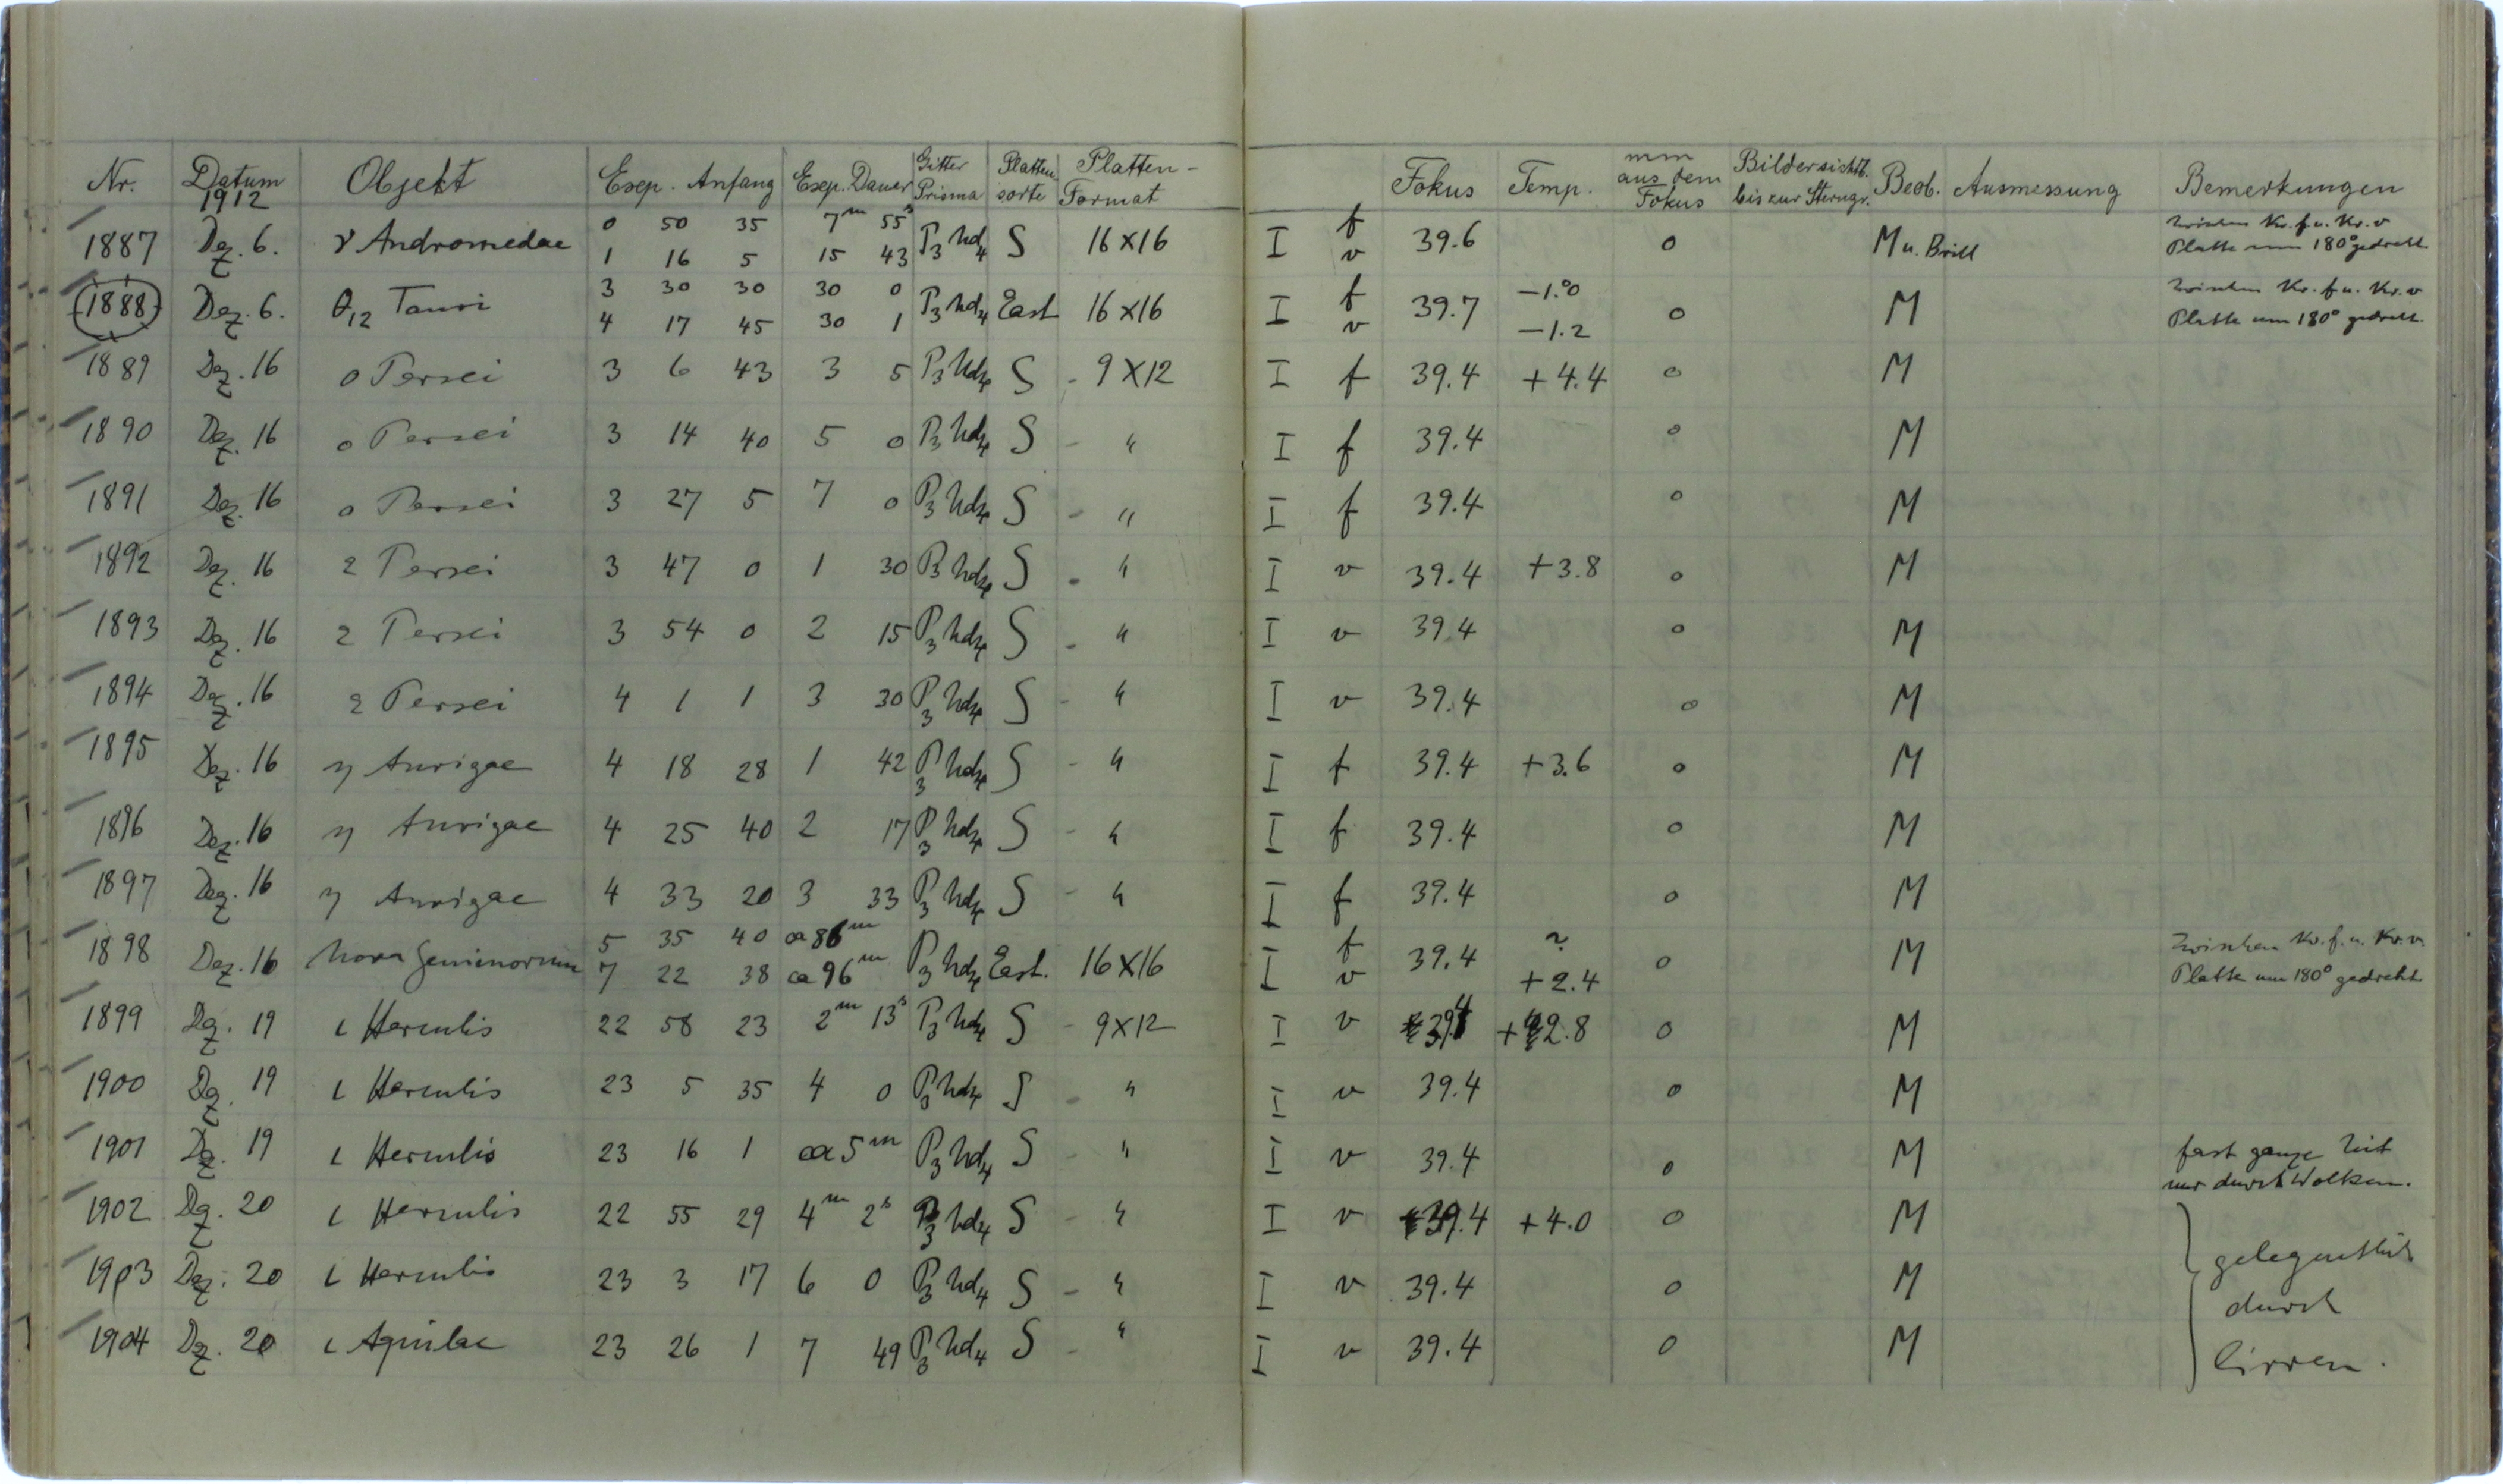 Nr. Datum 1912 Objekt Exp. Anfang Exp. Dauer Gitter Prisma Plattensorte Platten-Format Fokus Temp. mm aus dem Fokus Bildersichtb. bis zur Sterngr. Beob. Ausmessung Bemerkungen
1887 Dez. 6. γ Andromedae 0 50 35 7m 55s P3 hd4 S 16×16 I f 39.6 0 M u. Brill Zwischen Kr. f u. Kr. v
1 16 5 15 43 v Platte um 180° gedreht
1888 Dez. 6. θ12 Tauri 3 30 30 30 0 P3 hd4 East 16×16 I f 39.7 −1.°0 0 M Zwischen Kr. f u. Kr. v
4 17 45 30 1 v −1.2 Platte um 180° gedreht.
1889 Dez. 16 o Persei 3 6 43 3 5 P3 hd4 S - 9×12 I f 39.4 +4.4 0 M
1890 Dez. 16 o Persei 3 14 40 5 0 P3 hd4 S - " I f 39.4 0 M
1891 Dez. 16 o Persei 3 27 5 7 0 P3 hd4 S - " I f 39.4 0 M
1892 Dez. 16 Persei 3 47 0 1 30 P3 hd4 S - " I v 39.4 +3.8 0 M
1893 Dez. 16 Persei 3 54 0 2 15 P3 hd4 S - " I v 39.4 0 M
1894 Dez. 16 Persei 4 1 1 3 30 P3 hd4 S - " I v 39.4 0 M
1895 Dez. 16 η Aurigae 4 18 28 1 42 P3 hd4 S - " I f 39.4 +3.6 0 M
1896 Dez. 16 η Aurigae 4 25 40 2 17 P3 hd4 S - " I f 39.4 0 M
1897 Dez. 16 η Aurigae 4 33 20 3 33 P3 hd4 S - " I f 39.4 0 M
1898 Dez. 16 Nova Geminorum 5 35 40 ca 86m P3 hd4 East. 16×16 I f 39.4 ? 0 M Zwischen Kr. f. u. Kr. v.
7 22 38 ca 96m v +2.4 Platte um 180° gedreht
1899 Dez. 19 ι Herculis 22 58 23 2m 13s P3 hd4 S - 9×12 I v 39.4 +2.8 0 M
1900 Dez. 19 ι Herculis 23 5 35 4 0 P3 hd4 S - " I v 39.4 0 M
1901 Dez. 19 ι Herculis 23 16 1 ca 5m P3 hd4 S - " I v 39.4 0 M fast ganze Zeit
nur durch Wolken.
1902 Dez. 20 ι Herculis 22 55 29 4m 2s P3 hd4 S - " I v 39.4 +4.0 0 M
1903 Dez. 20 ι Herculis 23 3 17 6 0 P3 hd4 S - " I v 39.4 0 M gelegentlich
durch
1904 Dez. 20 ι Aquilae 23 26 1 7 49 P3 hd4 S - " I v 39.4 0 M Cirren.